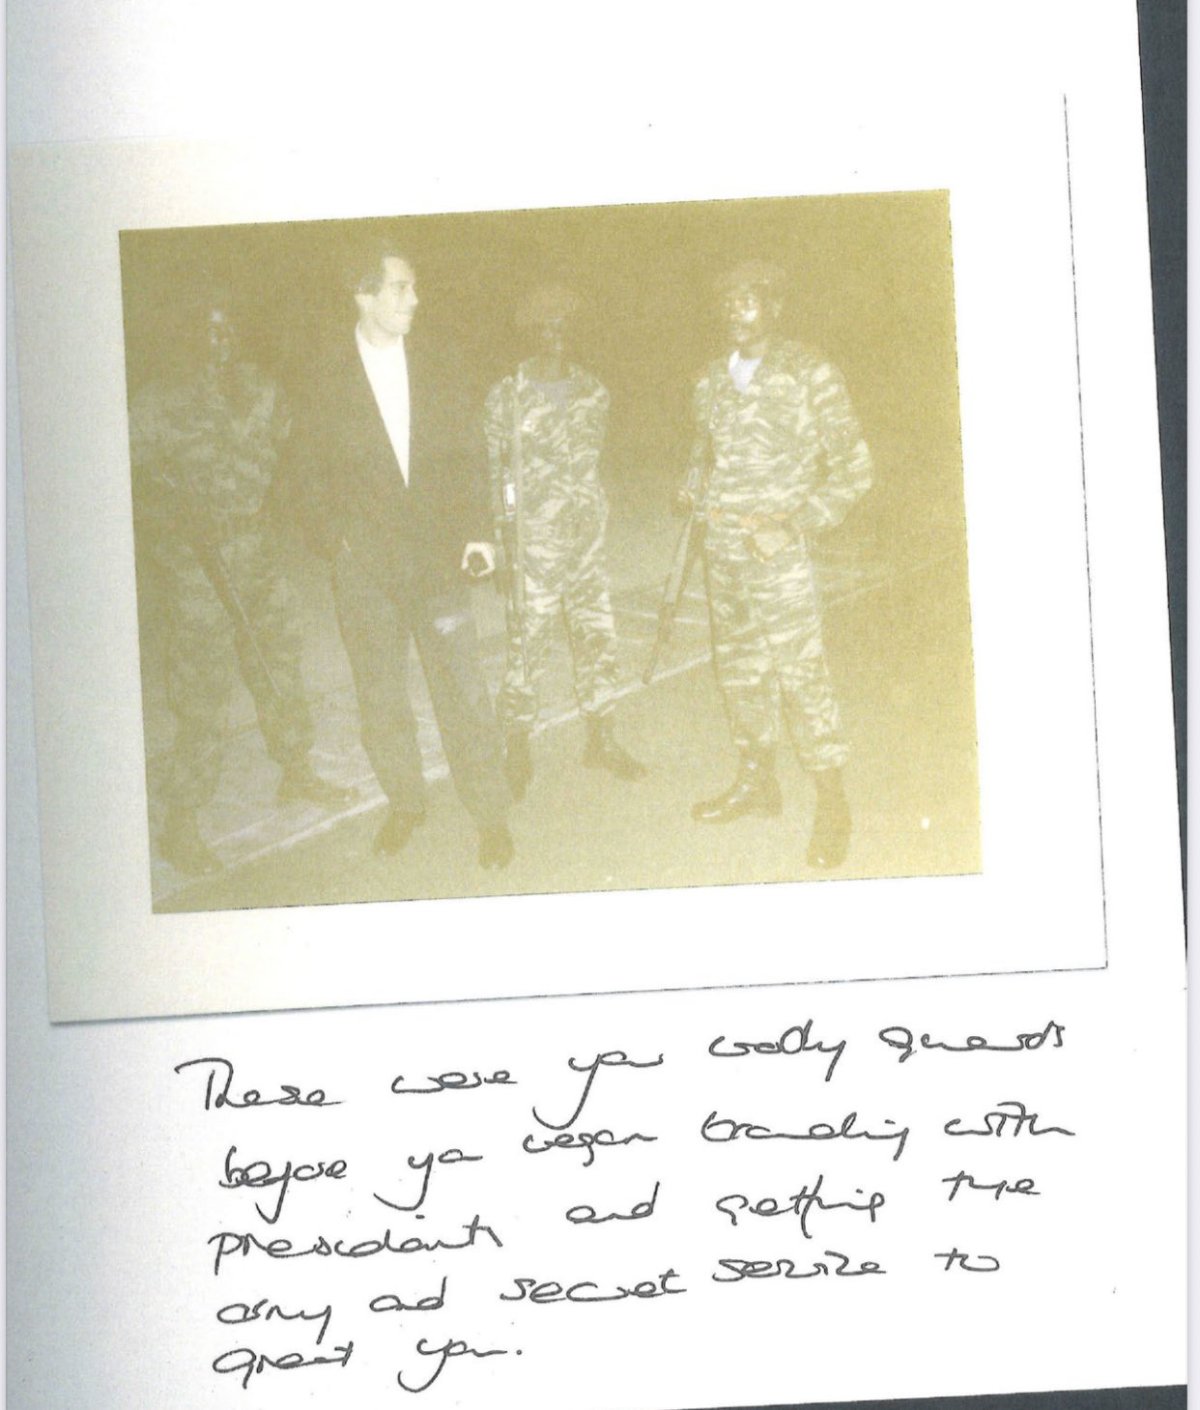 These were your body guards
before you began travelling with
presidents and getting the
army and secret service to
greet you.